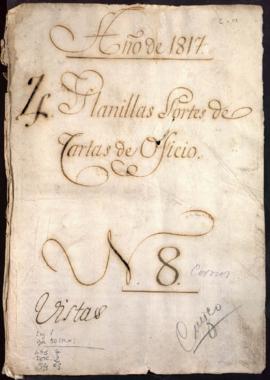 Año de 1817.
4 Planillas Portes de
Cartas de Officio.
N. 8.
Correos
Vistas
Cuzco